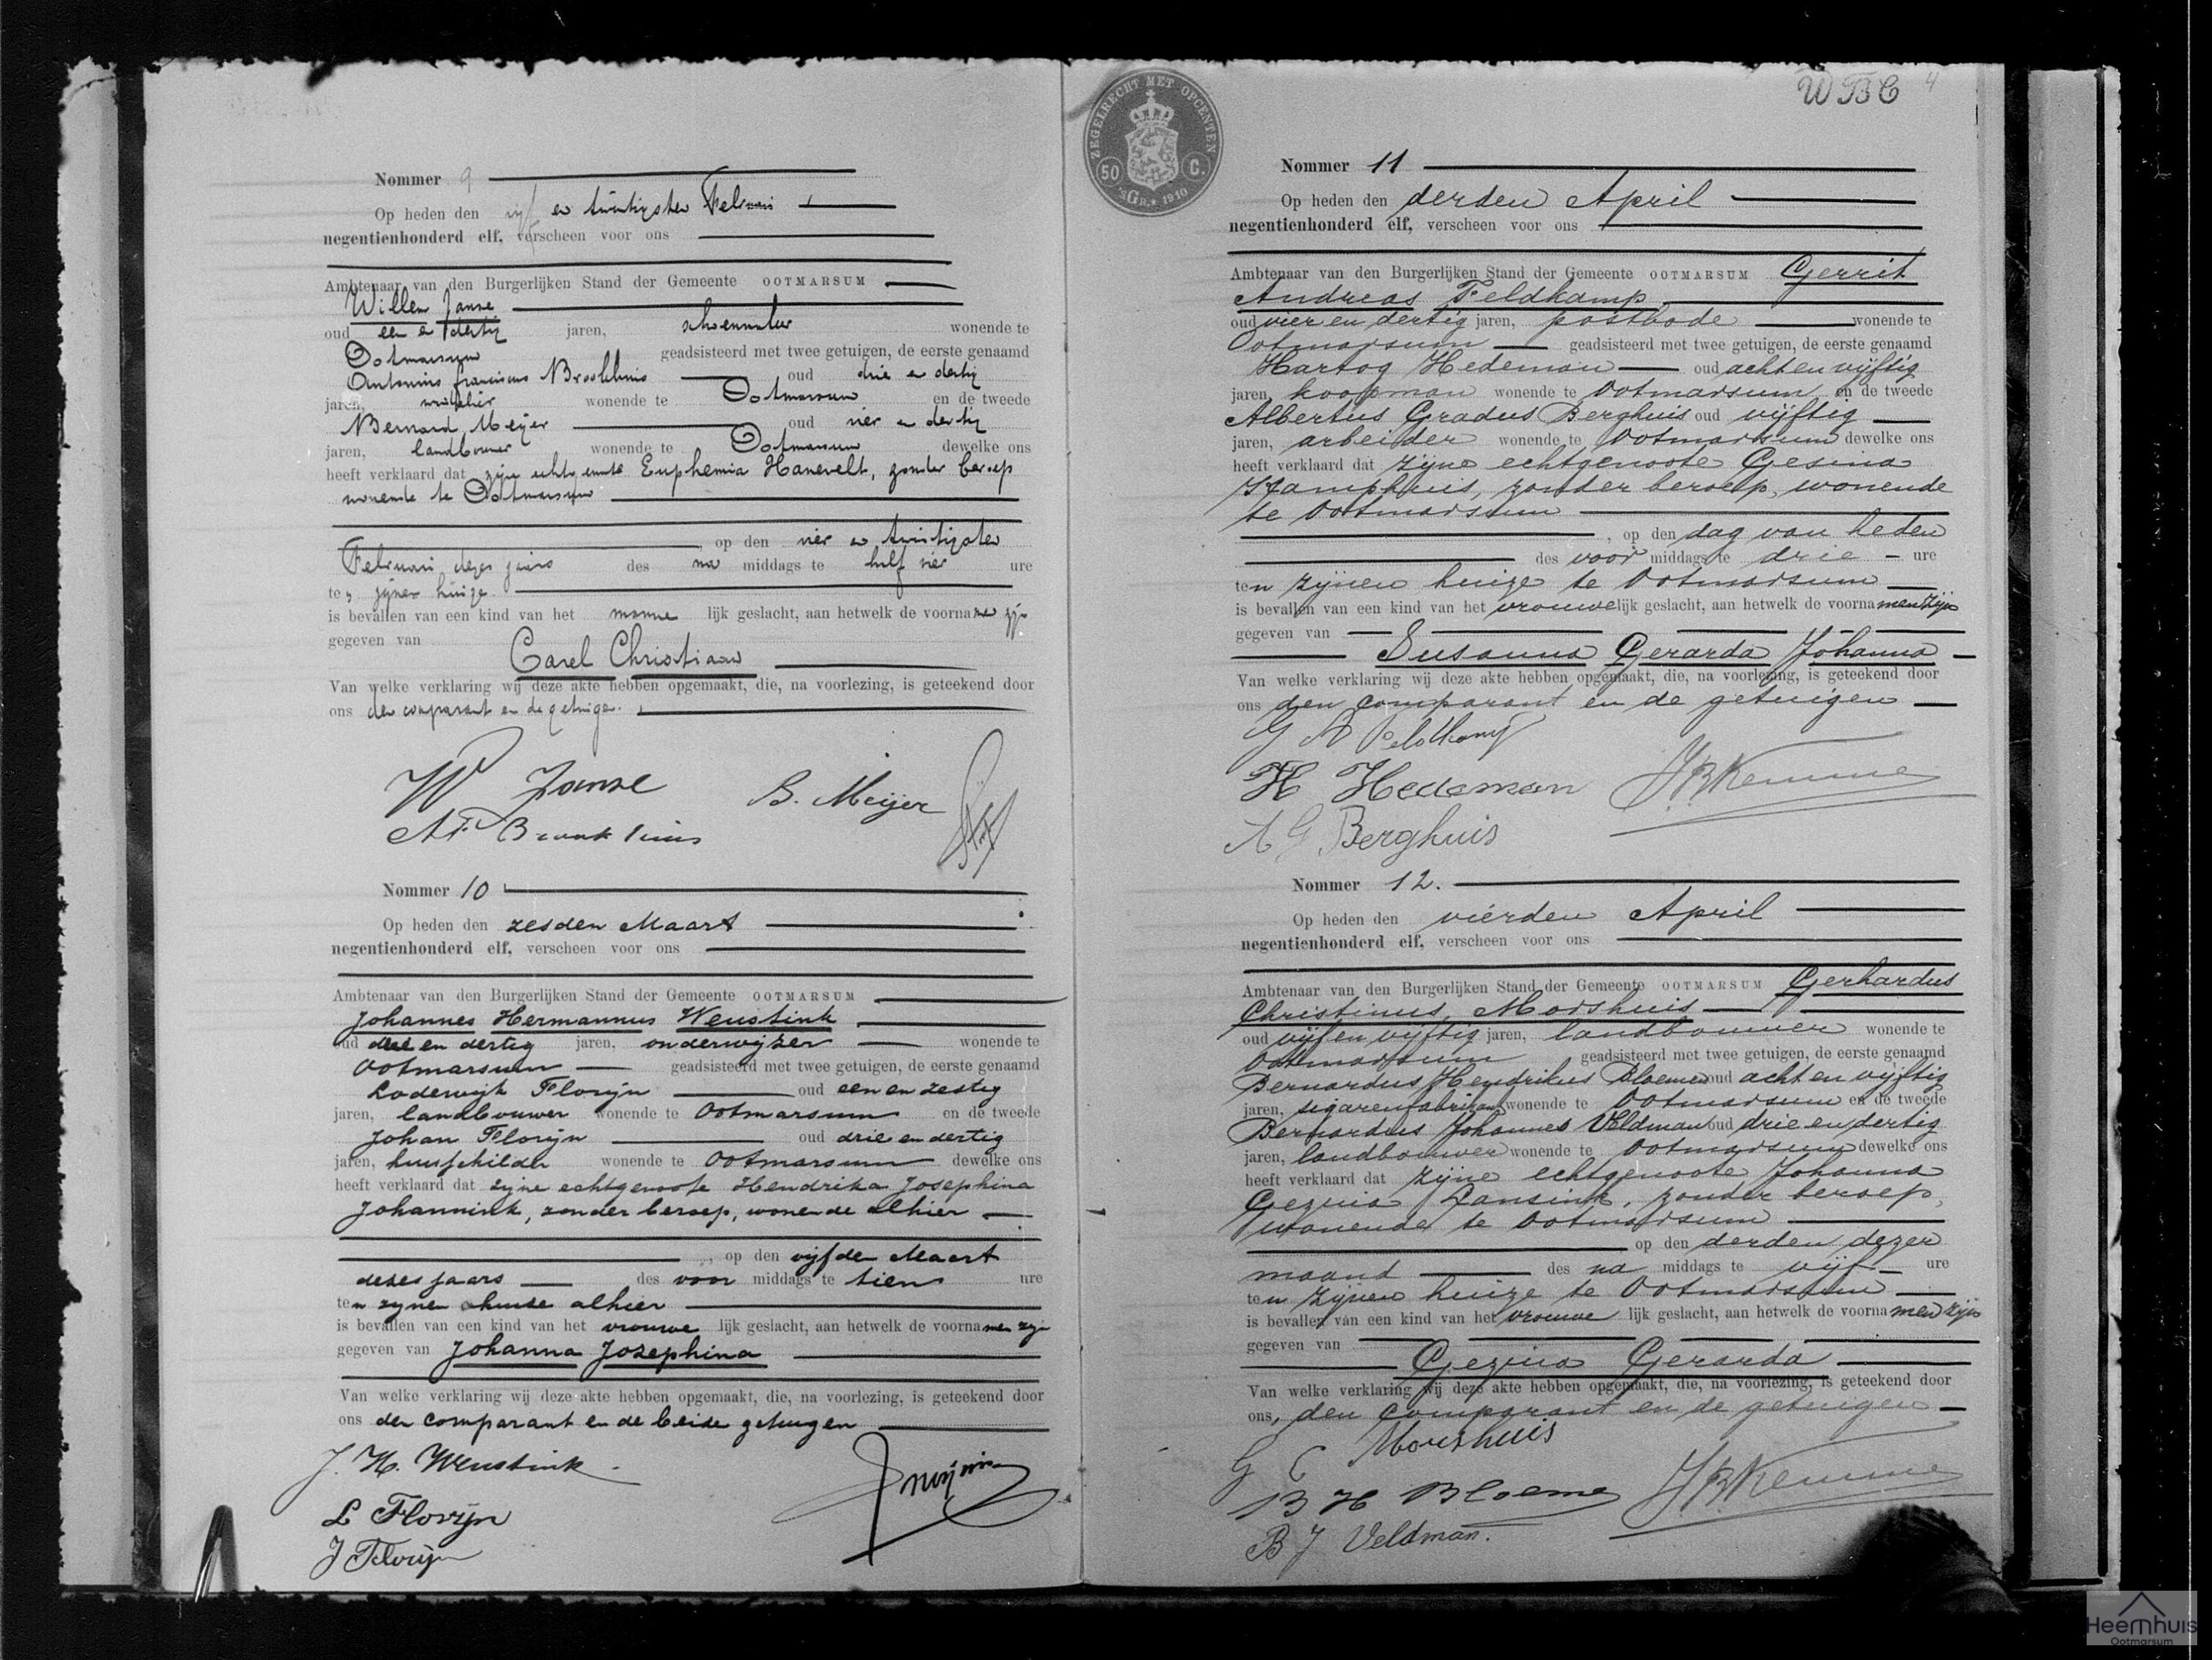 Nommer 9
Op heden den vijf en twintigsten Februari
negentienhonderd elf, verscheen voor ons
Ambtenaar van den Burgerlijken Stand der Gemeente OOTMARSUM
Willem Janse
oud een en dertig jaren, schoenmaker wonende te
Ootmarsum geadsisteerd met twee getuigen, de eerste genaamd
Antonius franciscus Brookhuis oud drie en dertig
jaren, winkelier wonende te Ootmarsum en de tweede
Bernard Meijer oud vier en dertig
jaren, landbouwer wonende te Ootmarsum dewelke ons
heeft verklaard dat zijne echtgenoote Euphemia Hanevelt, zonder beroep
wonende te Ootmarsum
, op den vier en twintigsten
Februari dezes jaars des na middags te half vier ure
ten zijnen huize
is bevallen van een kind van het manne lijk geslacht, aan hetwelk de voornamen zijn
gegeven van
Carel Christiaan
Van welke verklaring wij deze akte hebben opgemaakt, die, na voorlezing, is geteekend door
ons den comparant en de getuigen.
W Janse B. Meijer
AF Brookhuis
Nommer 10
Op heden den zesden Maart
negentienhonderd elf, verscheen voor ons
Ambtenaar van den Burgerlijken Stand der Gemeente OOTMARSUM
Johannes Hermannus Weustink
oud drie en dertig jaren, onderwijzer wonende te
Ootmarsum geadsisteerd met twee getuigen, de eerste genaamd
Lodewijk Florijn oud een en zestig
jaren, landbouwer wonende te Ootmarsum en de tweede
Johan Florijn oud drie en dertig
jaren, huisschilder wonende te Ootmarsum dewelke ons
heeft verklaard dat zijne echtgenoote Hendrika Josephina
Johannink, zonder beroep, wonende alhier
, op den vijfden Maart
dezes jaars des voor middags te tien ure
ten zijnen huize alhier
is bevallen van een kind van het vrouwe lijk geslacht, aan hetwelk de voornamen zijn
gegeven van Johanna Josephina
Van welke verklaring wij deze akte hebben opgemaakt, die, na voorlezing, is geteekend door
ons den comparant en de beide getuigen
J. H. Weustink
L Florijn
J Florijn
ZEGELRECHT MET OPCENTEN
50 C.
'SGR. 1910
WBC 4
Nommer 11
Op heden den derden April
negentienhonderd elf, verscheen voor ons
Ambtenaar van den Burgerlijken Stand der Gemeente OOTMARSUM Gerrit
Andreas Feldkamp
oud vier en dertig jaren, postbode wonende te
Ootmarsum geadsisteerd met twee getuigen, de eerste genaamd
Hartog Hedeman oud acht en vijftig
jaren, koopman wonende te Ootmarsum en de tweede
Albertus Gradus Berghuis oud vijftig
jaren, arbeider wonende te Ootmarsum dewelke ons
heeft verklaard dat zijne echtgenoote Gesina
Kamphuis, zonder beroep, wonende
te Ootmarsum
, op den dag van heden
des voor middags te drie ure
ten zijnen huize te Ootmarsum
is bevallen van een kind van het vrouwelijk geslacht, aan hetwelk de voornamen zijn
gegeven van
Susanna Gerarda Johanna
Van welke verklaring wij deze akte hebben opgemaakt, die, na voorlezing, is geteekend door
ons den comparant en de getuigen
G A Feldkamp
H Hedeman JBKemme
A G Berghuis
Nommer 12.
Op heden den vierden April
negentienhonderd elf, verscheen voor ons
Ambtenaar van den Burgerlijken Stand der Gemeente OOTMARSUM Gerhardus
Christinus Morshuis
oud vijf en vijftig jaren, landbouwer wonende te
Ootmarsum geadsisteerd met twee getuigen, de eerste genaamd
Bernardus Hendrikus Bloemen oud acht en vijftig
jaren, sigarenfabrikant wonende te Ootmarsum en de tweede
Bernardus Johannes Veldman oud drie en dertig
jaren, landbouwer wonende te Ootmarsum dewelke ons
heeft verklaard dat zijne echtgenoote Johanna
Gezina Lansink, zonder beroep,
wonende te Ootmarsum
op den derden dezer
maand des na middags te vijf ure
ten zijnen huize te Ootmarsum
is bevallen van een kind van het vrouwe lijk geslacht, aan hetwelk de voornamen zijn
gegeven van
Gezina Gerarda
Van welke verklaring wij deze akte hebben opgemaakt, die, na voorlezing, is geteekend door
ons, den comparant en de getuigen
G C Morshuis
B H Bloeme JBKemme
B J Veldman.
Heemhuis
Ootmarsum